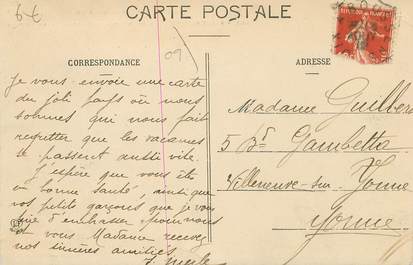 6€
CARTE POSTALE
09
CORRESPONDANCE
ADRESSE
Je vous envoie une carte
du joli pays où nous
sommes qui nous fait
regretter que les vacances
se passent aussi vite.
J'espère que vous êtes
en bonne santé, ainsi que
vos petits garçons que je vous
prie d'embrasser pour nous
et vous Madame recevez
nos sincères amitiés
Madame Guillbert
5 Bd Gambetta
Villeneuve-sur-Yonne
Yonne